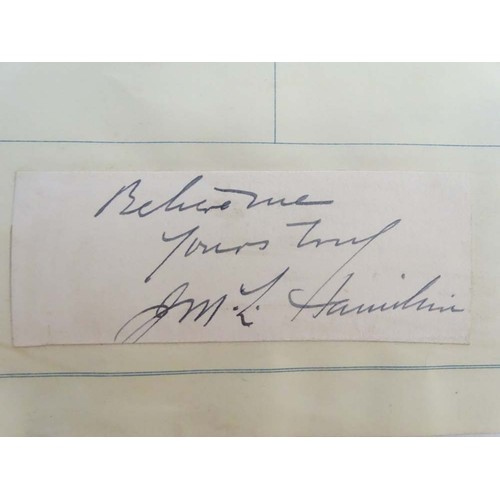 Believe me
Yours truly
J. McL. Hamilton